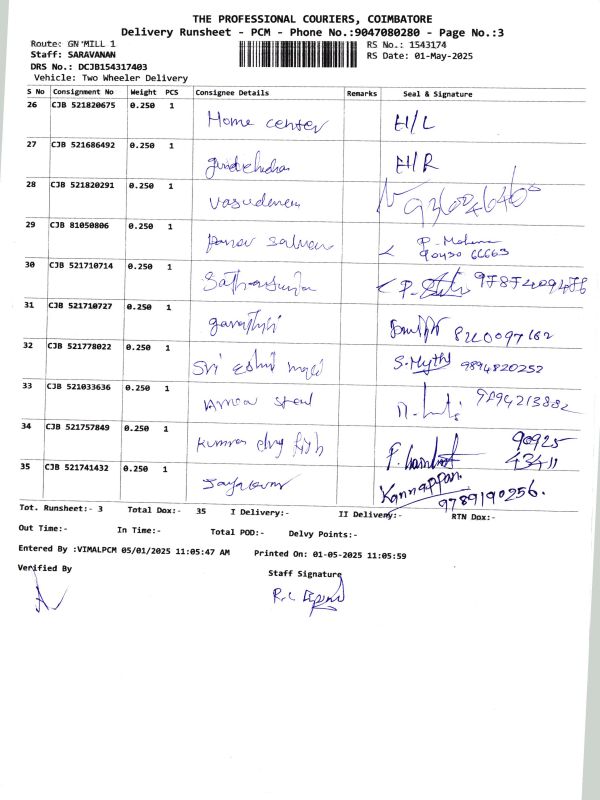 THE PROFESSIONAL COURIERS, COIMBATORE
Delivery Runsheet - PCM - Phone No.:9047080280 - Page No.:3
Route: GN MILL 1
RS No.: 1543174
Staff: SARAVANAN
RS Date: 01-May-2025
DRS No.: DCJB154317403
Vehicle: Two Wheeler Delivery
S No Consignment No Weight PCS Consignee Details Remarks Seal & Signature
26 CJB 521820675 0.250 1 Home center H/L
27 CJB 521686492 0.250 1 H/R
28 CJB 521820291 0.250 1
29 CJB 81050806 0.250 1 P. Mohana
90430 66663
30 CJB 521710714 0.250 1
31 CJB 521710727 0.250 1
32 CJB 521778022 0.250 1 Sri 9894820252
33 CJB 521033636 0.250 1
34 CJB 521757849 0.250 1 90925
43411
35 CJB 521741432 0.250 1 Kannappan.
9789190256.
Tot. Runsheet:- 3 Total Dox:- 35 I Delivery:- II Delivery:- RTN Dox:-
Out Time:- In Time:- Total POD:- Delvy Points:-
Entered By :VIMALPCM 05/01/2025 11:05:47 AM Printed On: 01-05-2025 11:05:59
Verified By
Staff Signature